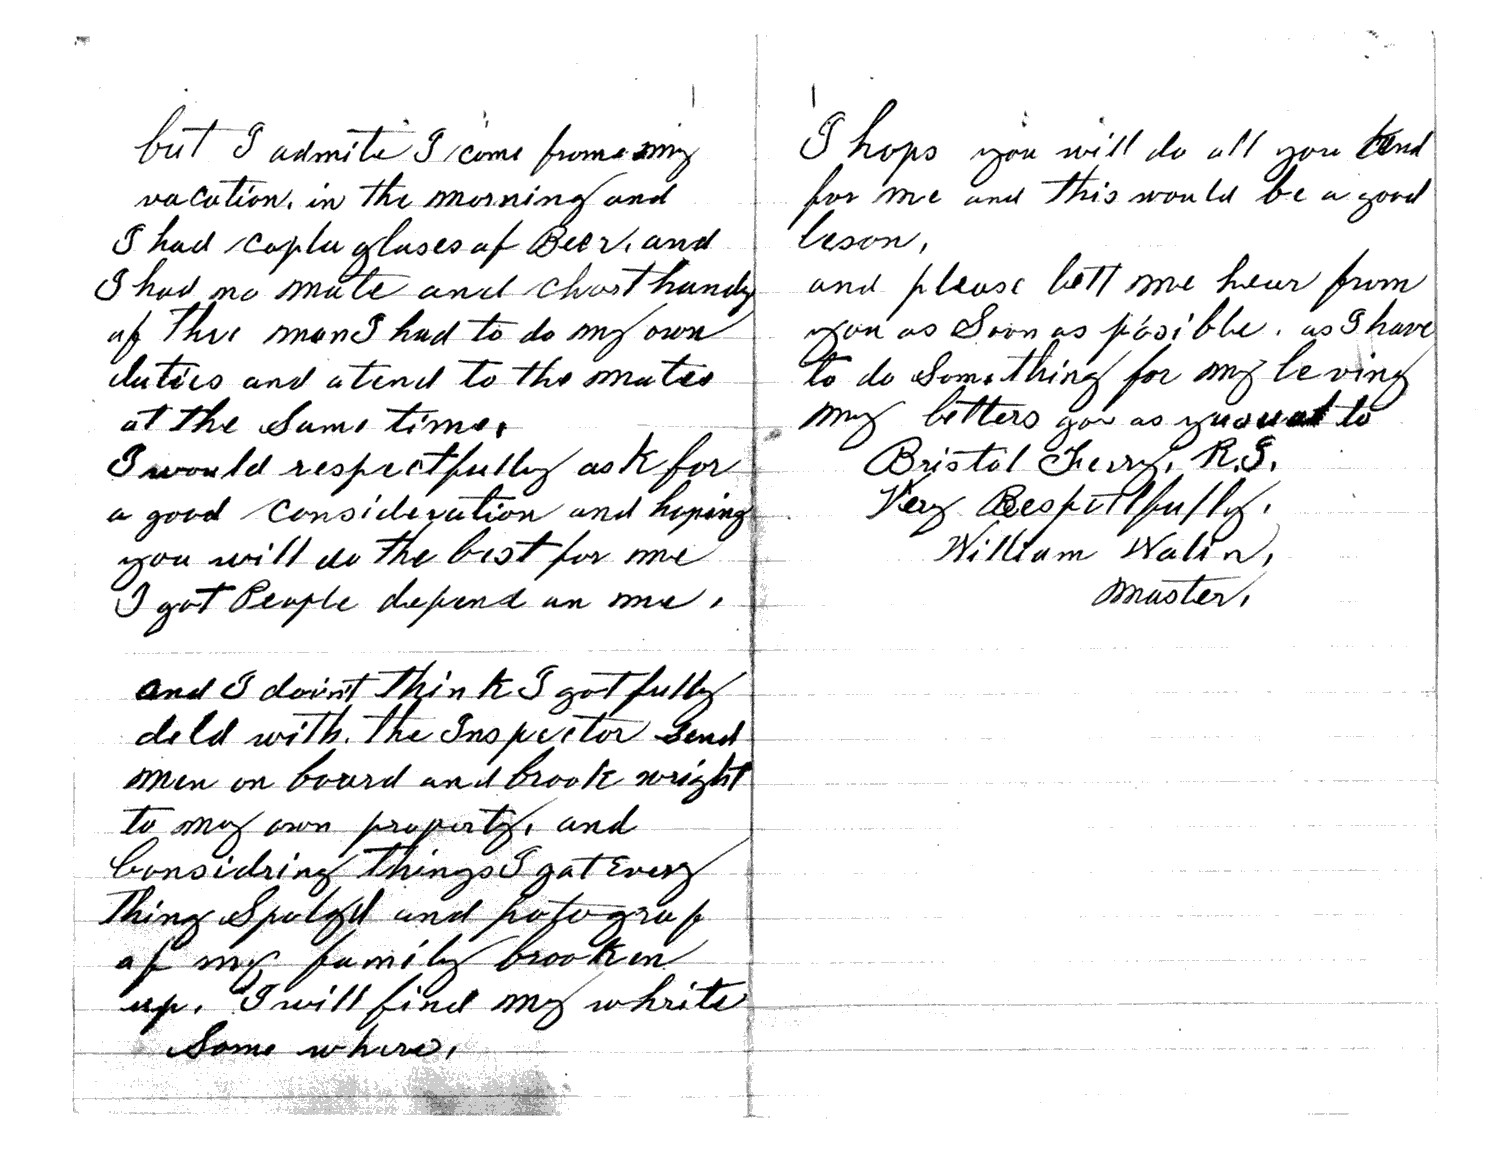 but I admite I come frome my
vacation. in the morning and
I had copla glases of Beer. and
I had no mate and chort handy
of thre man I had to do my own
duties and atend to the mates
at the same time.
I would respectfully ask for
a good consideration and hoping
you will do the best for me
I got People depend on me.
and I doint think I got fully
deld with. the Inspector send
men on board and brook wright
to my own property. and
Considring things I got Every
thing Spoled and potograp
of my family brooken
up. I will find my white
Some where.
I hops you will do all you
for me and this would be a good
leson.
and please lett me hear from
you as Soon as posible. as I have
to do Something for my leving
my letters go as to
Bristol Ferry. R.I.
Very Respectfully.
William Walin.
Master.